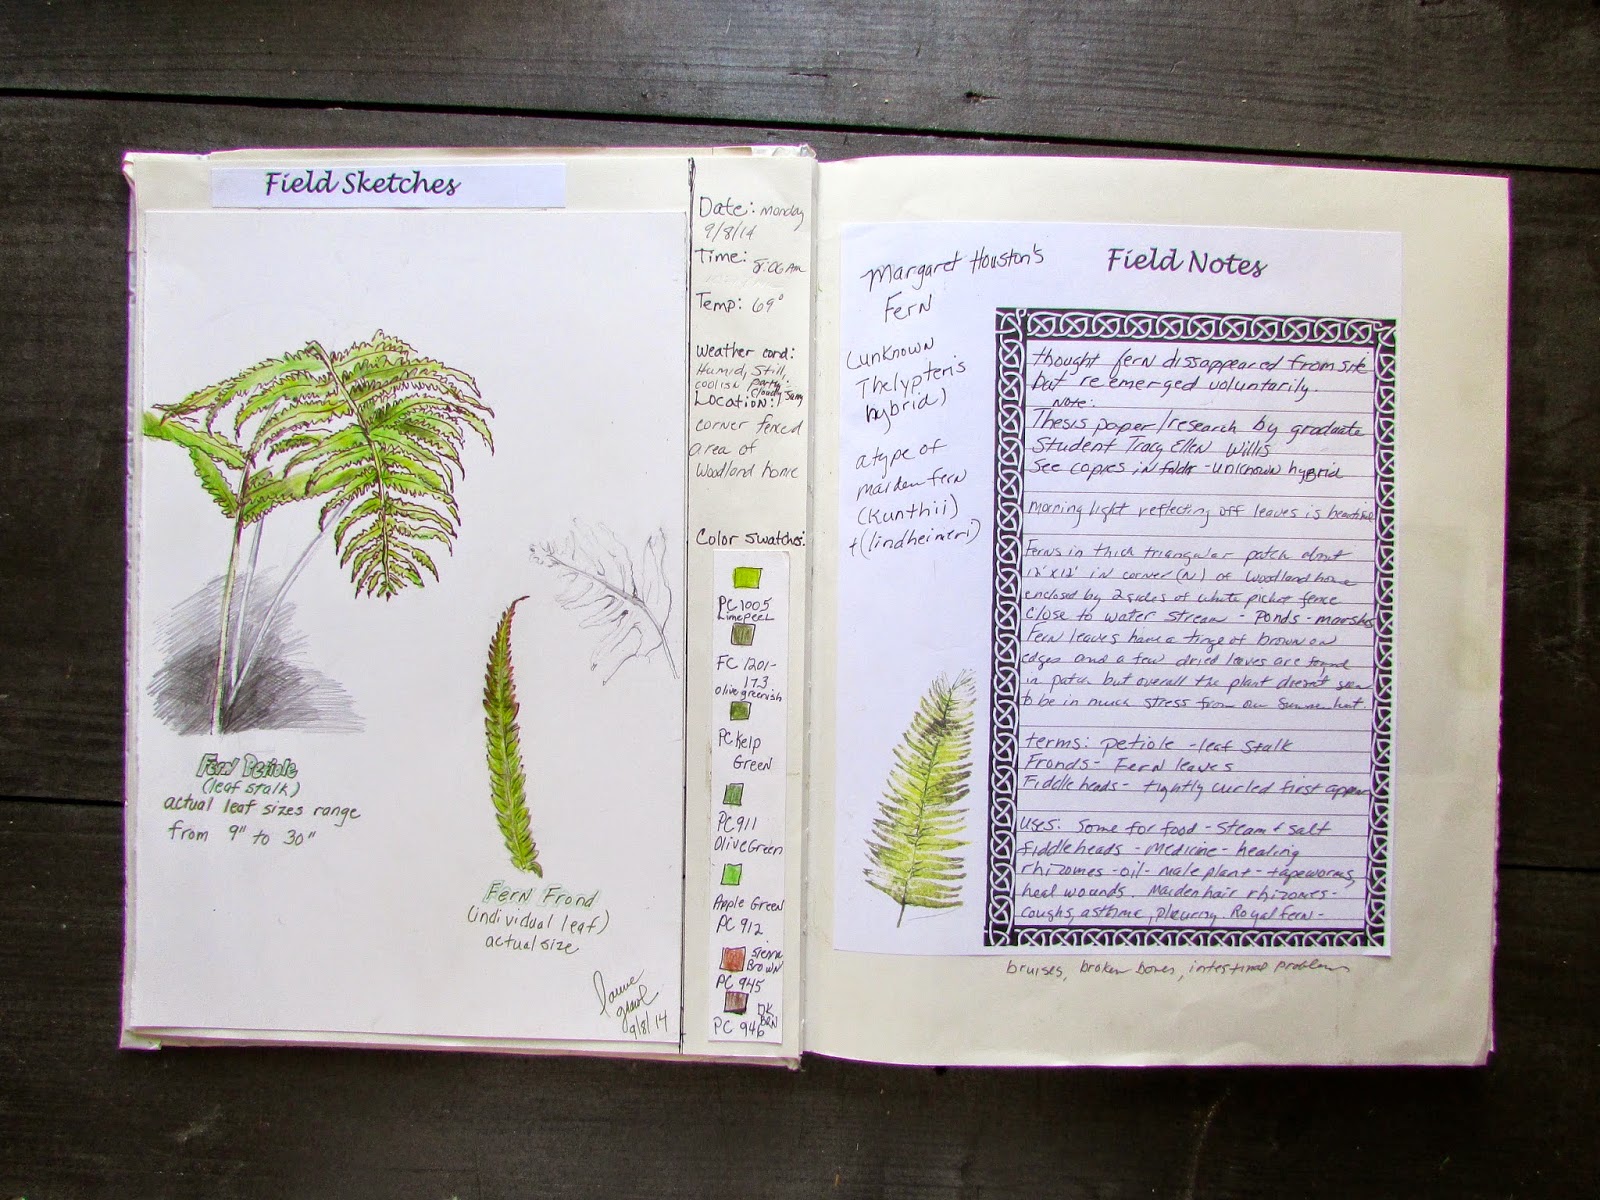 Field Sketches
Fern Petiole
(leaf stalk)
actual leaf sizes range
from 9" to 30"
Fern Frond
(individual leaf)
actual size
9/8/14
Date: Monday
9/8/14
Time: 8:06 Am
Temp: 69°
Weather cond:
Humid, Still,
coolish partly
Cloudy
Location:
corner fenced
area of
Woodland home
Color Swatches:
PC 1005
Limepeel
FC 1201-
173
Olive greenish
PC Kelp
Green
PC 911
Olive Green
Apple Green
PC 912
Sienna
Brown
PC 945
DK
BRN
PC 946
Margaret Houston's
Fern
(unknown
Thelypteris
hybrid)
a type of
maiden fern
(Kunthii)
+ (lindheimeri)
Field Notes
thought fern dissappeared from site
but re emerged voluntarily.
Note:
Thesis paper/research by graduate
Student Tracy Ellen Willis
See copies in folder - unknown hybrid
morning light reflecting off leaves is beautiful
Ferns in thick triangular patch about
12'x12' in corner (N) of Woodland home
enclosed by 2 sides of white picket fence
Close to water stream - ponds - marshes
Fern leaves have a tinge of brown on
edges and a few dried leaves are found
in patch but overall the plant doesn't seem
to be in much stress from our summer heat.
terms: petiole - leaf stalk
Fronds - Fern leaves
Fiddleheads - tightly curled first appear
uses: Some for food - Steam + salt
fiddleheads - Medicine - healing
rhizomes - oil - male plant - tapeworms,
heal wounds. Maidenhair rhizomes -
coughs, asthma, pleurisy Royal fern -
bruises, broken bones, intestinal problems